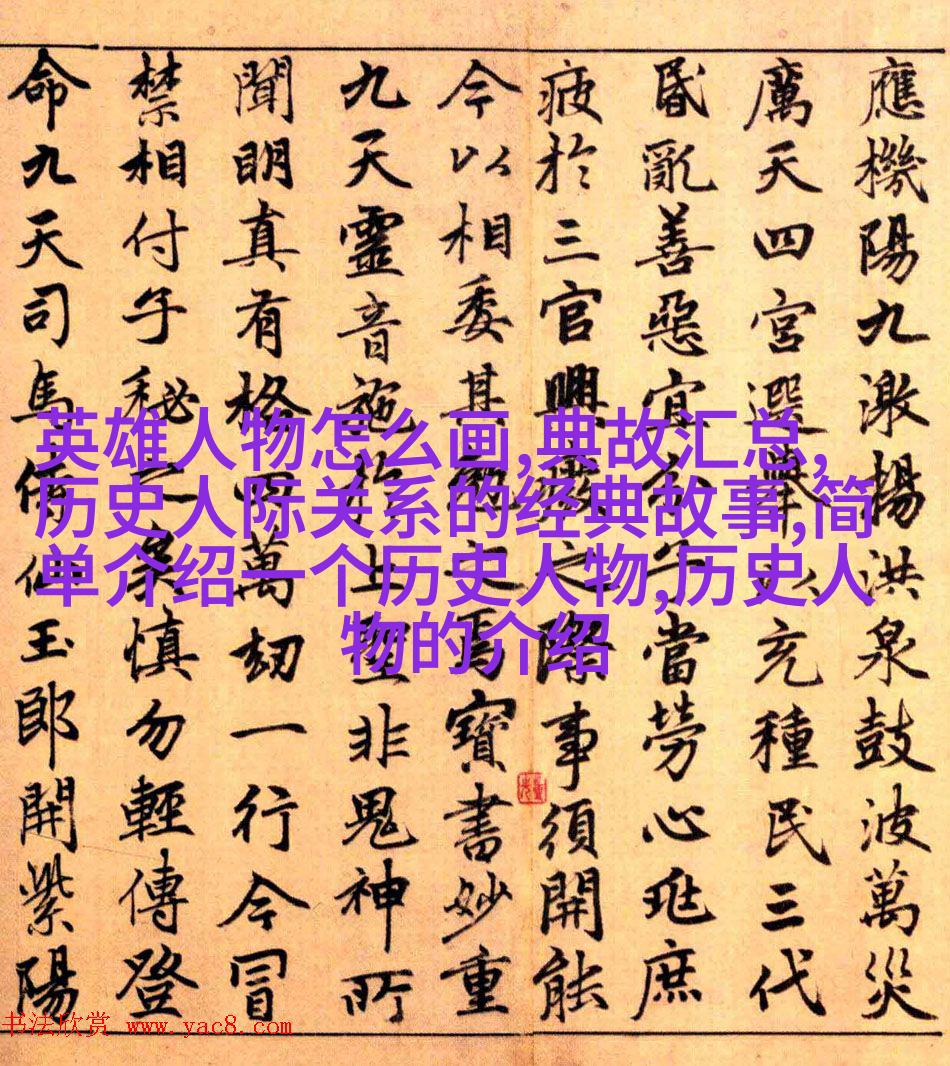 應機陽九激揚洪泉鼓波萬災
厲天四宮選舉以充種民三代
昬亂善惡宜分子當勞心兆庶
疲於三官興廢之際事須開能
今以相委其勗之焉寶書妙重
九天靈音施於上聖非鬼神所
聞明真有格四萬劫一行今冒
禁相付子秘之矣慎勿輕傳登
命九天司馬侍仙玉郎開紫陽
英雄人物怎么画,典故汇总,
历史人际关系的经典故事,简
单介绍一个历史人物,历史人
物的介绍
书法欣赏 www.yac8.com